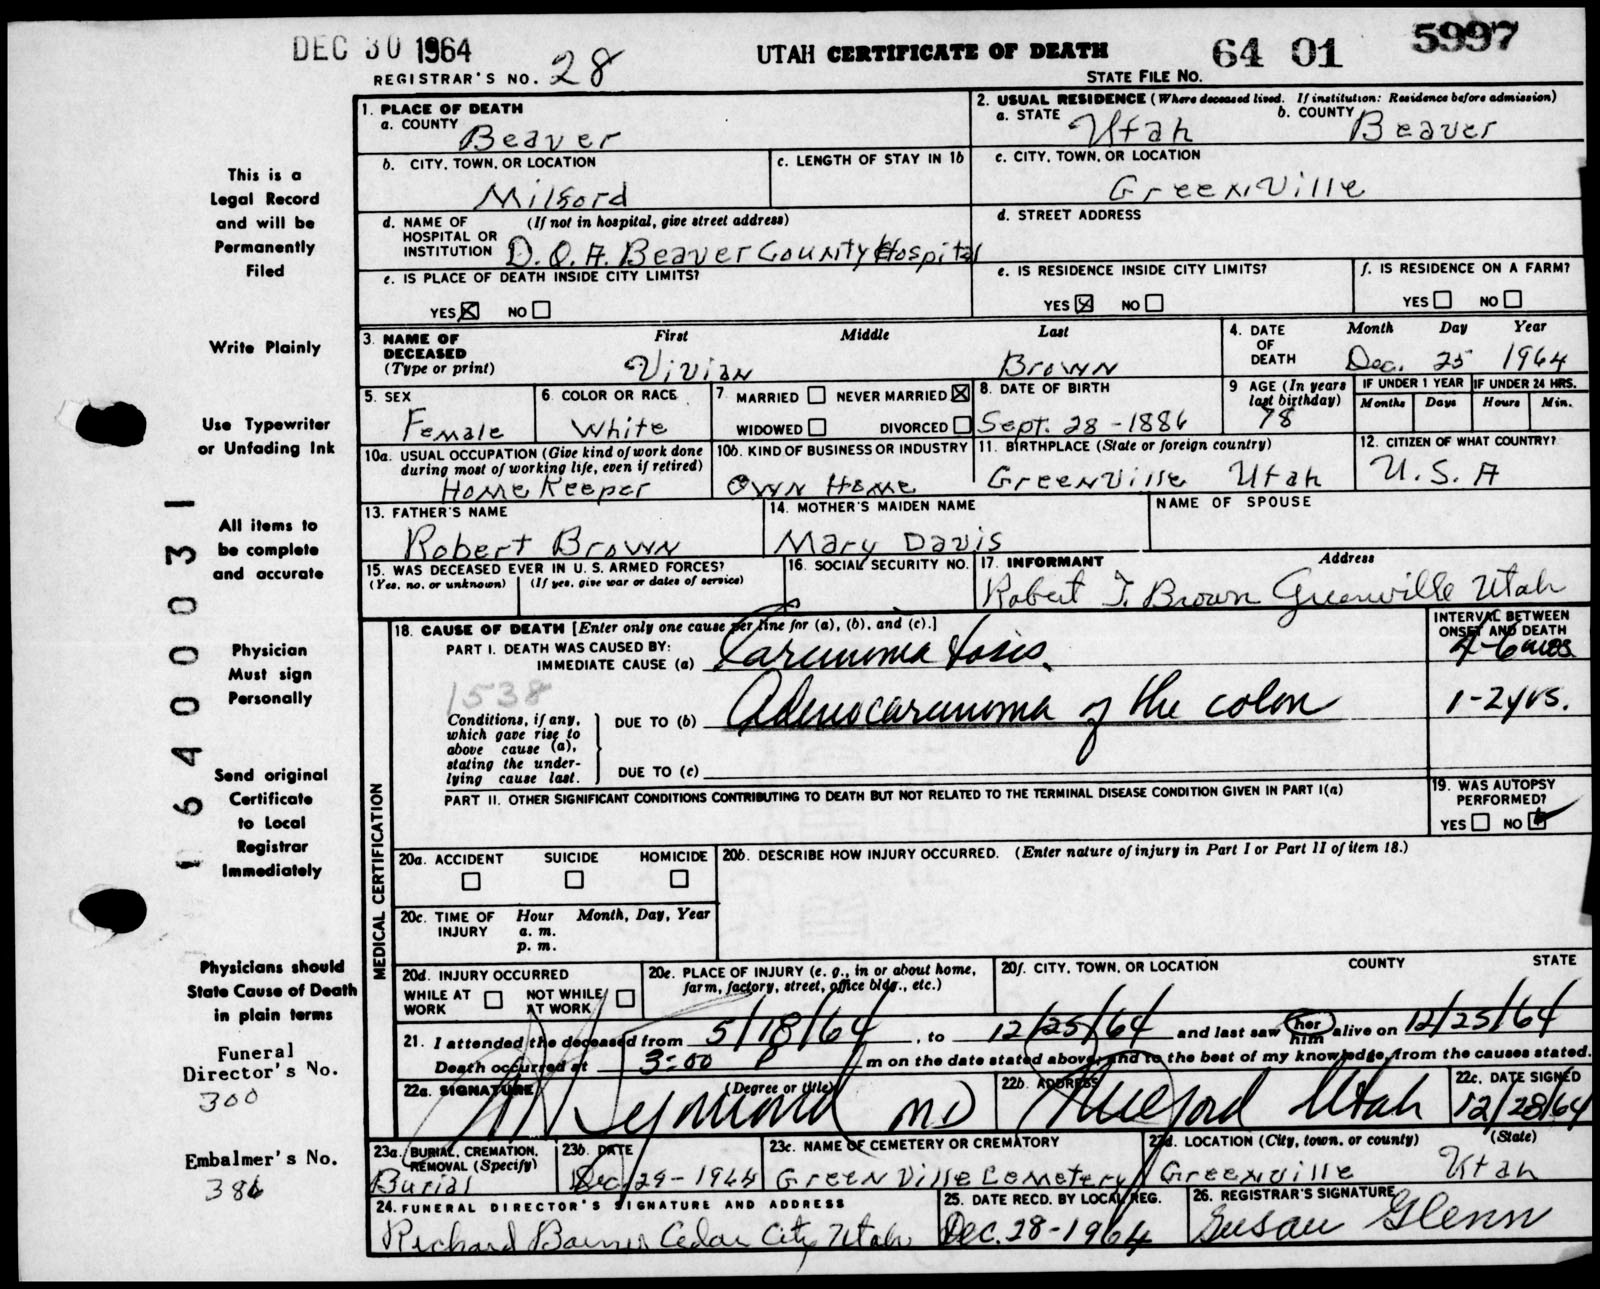 DEC 30 1964
UTAH CERTIFICATE OF DEATH
64 01 5997
REGISTRAR'S NO. 28
STATE FILE NO.
This is a
Legal Record
and will be
Permanently
Filed
Write Plainly
Use Typewriter
or Unfading Ink
All items to
be complete
and accurate
Physician
Must sign
Personally
Send original
Certificate
to Local
Registrar
Immediately
Physicians should
State Cause of Death
in plain terms
Funeral
Director's No.
300
Embalmer's No.
386
1. PLACE OF DEATH
a. COUNTY Beaver
2. USUAL RESIDENCE (Where deceased lived. If institution: Residence before admission)
a. STATE Utah b. COUNTY Beaver
b. CITY, TOWN, OR LOCATION
Milford
c. LENGTH OF STAY IN 1b
c. CITY, TOWN, OR LOCATION
GreenVille
d. NAME OF (If not in hospital, give street address)
HOSPITAL OR
INSTITUTION D.O.A. Beaver County Hospital
d. STREET ADDRESS
e. IS PLACE OF DEATH INSIDE CITY LIMITS?
YES NO
e. IS RESIDENCE INSIDE CITY LIMITS?
YES NO
f. IS RESIDENCE ON A FARM?
YES NO
3. NAME OF First Middle Last
DECEASED
(Type or print) Vivian Brown
4. DATE Month Day Year
OF
DEATH Dec. 25 1964
5. SEX
Female
6. COLOR OR RACE
White
7. MARRIED NEVER MARRIED
WIDOWED DIVORCED
8. DATE OF BIRTH
Sept. 28-1886
9 AGE (In years
last birthday)
78
IF UNDER 1 YEAR IF UNDER 24 HRS.
Months Days Hours Min.
10a. USUAL OCCUPATION (Give kind of work done
during most of working life, even if retired)
Home Keeper
10b. KIND OF BUSINESS OR INDUSTRY
Own Home
11. BIRTHPLACE (State or foreign country)
GreenVille Utah
12. CITIZEN OF WHAT COUNTRY?
U.S.A
13. FATHER'S NAME
Robert Brown
14. MOTHER'S MAIDEN NAME
Mary Davis
NAME OF SPOUSE
15. WAS DECEASED EVER IN U. S. ARMED FORCES?
(Yes, no, or unknown) (If yes, give war or dates of service)
16. SOCIAL SECURITY NO.
17. INFORMANT Address
Robert T. Brown Greenville Utah
MEDICAL CERTIFICATION
18. CAUSE OF DEATH [Enter only one cause per line for (a), (b), and (c).]
INTERVAL BETWEEN
ONSET AND DEATH
PART I. DEATH WAS CAUSED BY:
IMMEDIATE CAUSE (a) Carcinoma tosis. 4-6 mos.
1538
Conditions, if any,
which gave rise to
above cause (a),
stating the under-
lying cause last.
DUE TO (b) Adenocarcinoma of the colon 1-2 yrs.
DUE TO (c)
PART II. OTHER SIGNIFICANT CONDITIONS CONTRIBUTING TO DEATH BUT NOT RELATED TO THE TERMINAL DISEASE CONDITION GIVEN IN PART I(a)
19. WAS AUTOPSY
PERFORMED?
YES NO
20a. ACCIDENT SUICIDE HOMICIDE
20b. DESCRIBE HOW INJURY OCCURRED. (Enter nature of injury in Part I or Part II of item 18.)
20c. TIME OF Hour Month, Day, Year
INJURY a. m.
p. m.
20d. INJURY OCCURRED
WHILE AT
WORK
NOT WHILE
AT WORK
20e. PLACE OF INJURY (e. g., in or about home,
farm, factory, street, office bldg., etc.)
20f. CITY, TOWN, OR LOCATION COUNTY STATE
21. I attended the deceased from 5/18/64, to 12/25/64 and last saw her him alive on 12/25/64
Death occurred at 3:00 P m on the date stated above, and to the best of my knowledge, from the causes stated.
22a. SIGNATURE (Degree or title) MD
22b. ADDRESS
Milford Utah
22c. DATE SIGNED
12/28/64
23a. BURIAL, CREMATION,
REMOVAL (Specify)
Burial
23b. DATE
Dec 29-1964
23c. NAME OF CEMETERY OR CREMATORY
GreenVille Cemetery
23d. LOCATION (City, town, or county) (State)
Greenville Utah
24. FUNERAL DIRECTOR'S SIGNATURE AND ADDRESS
Richard Cedar City Utah
25. DATE RECD. BY LOCAL REG.
Dec. 28-1964
26. REGISTRAR'S SIGNATURE
Susan Glenn